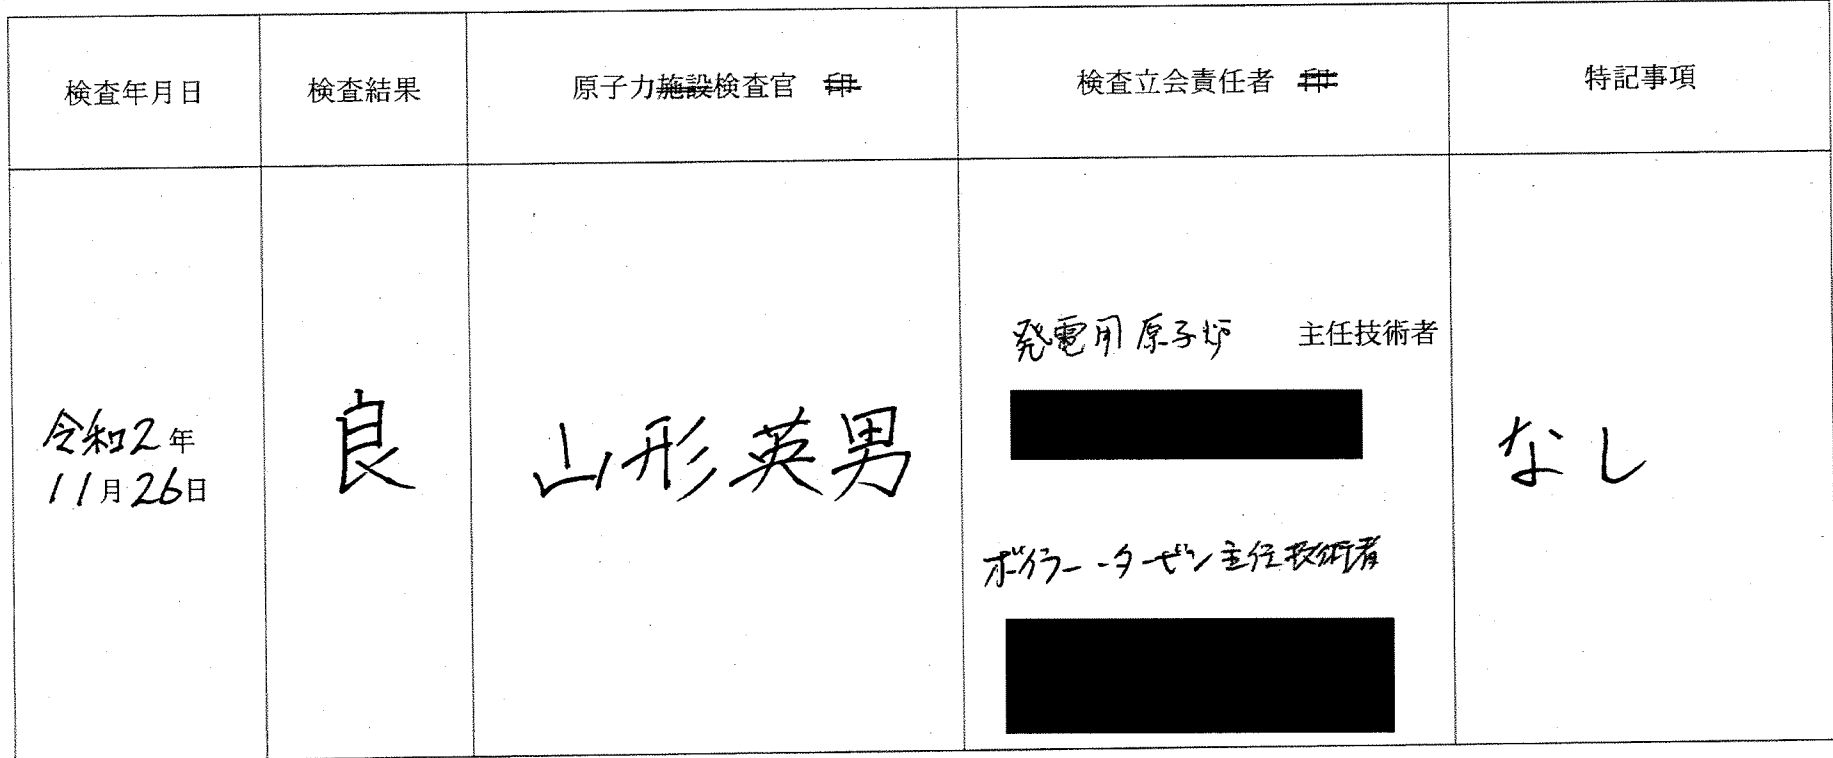 検査年月日
検査結果
原子力施設検査官 印
検査立会責任者 印
特記事項
令和2年
11月26日
良
山形英男
発電用原子炉 主任技術者
ボイラー・タービン主任技術者
なし